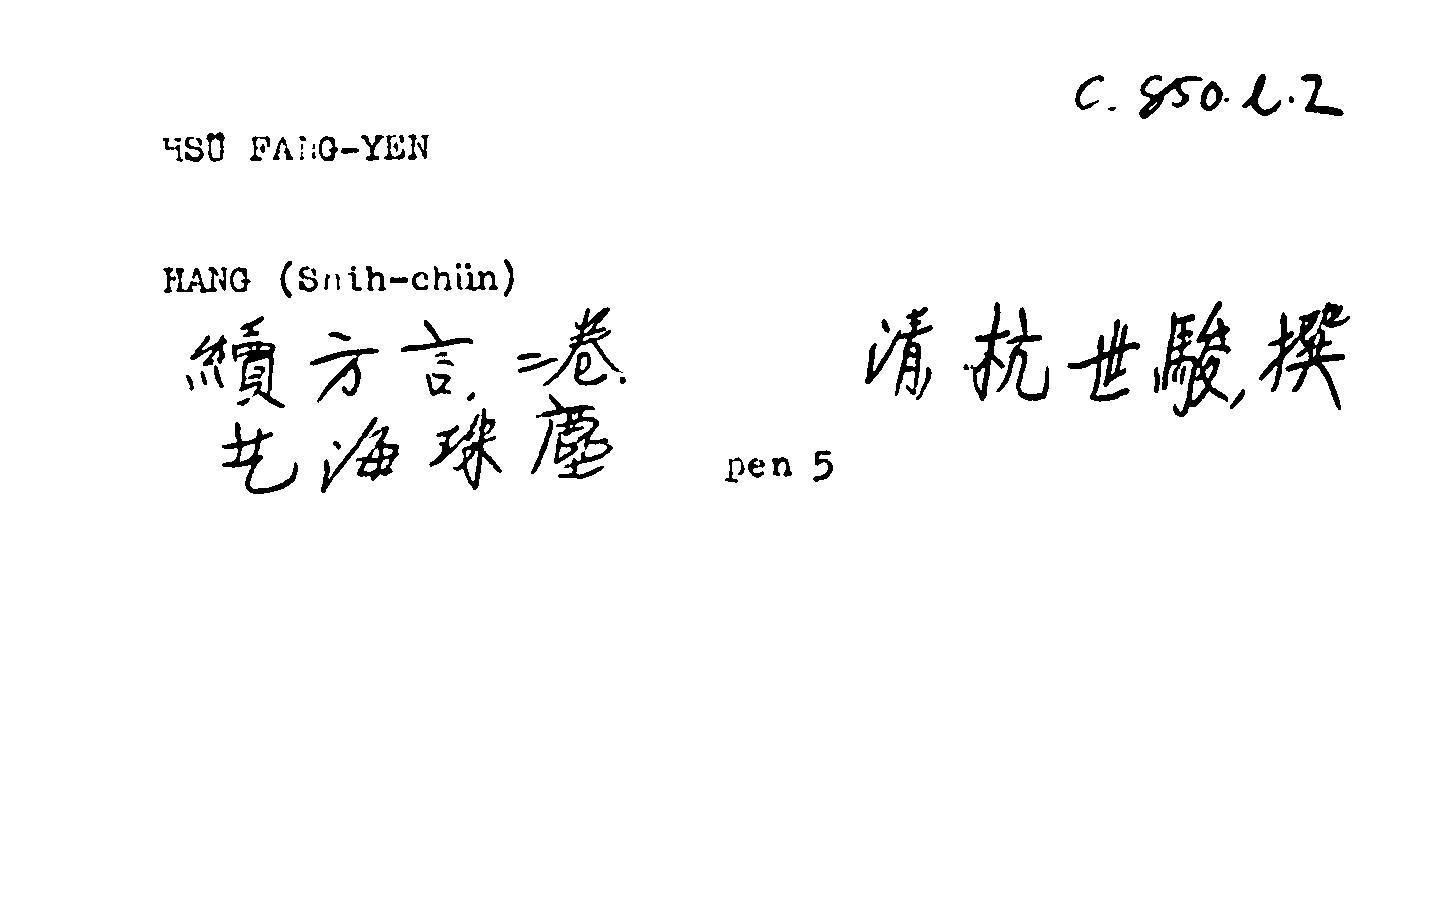 C. 850.l.2
HSÜ FANG-YEN
HANG (Shih-chün)
續方言. 二卷. 清 杭世駿, 撰
艺海珠塵 pen 5